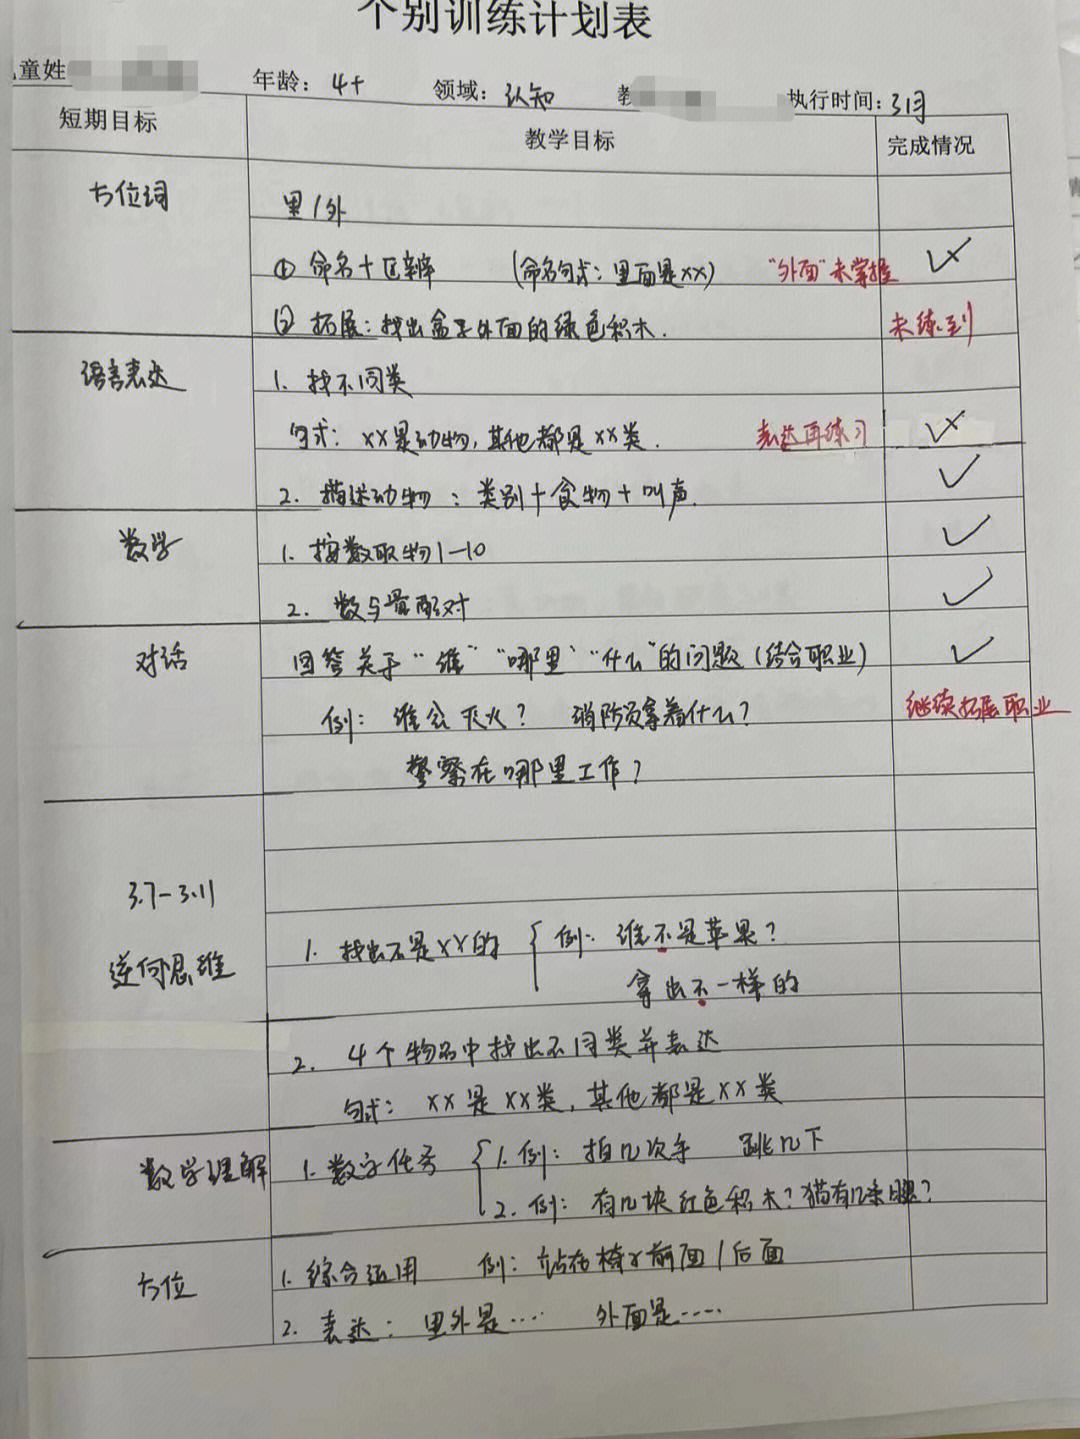 个别训练计划表
儿童姓 年龄: 4+ 领域: 认知 教 执行时间: 3月
短期目标 教学目标 完成情况
方位词 里/外
① 命名+区辨 (命名句式: 里面是XX) "外面"未掌握 ✓×
② 拓展: 找出盒子外面的绿色积木. 未练到
语言表达 1. 找不同类
句式: XX是动物, 其他都是XX类. 表达再练习 ✓×
2. 描述动物: 类别+食物+叫声. ✓
数学 1. 按数取物1—10 ✓
2. 数与量配对 ✓
对话 回答关于"谁" "哪里" "什么"的问题 (结合职业) ✓
例: 谁会灭火? 消防员拿着什么? 继续拓展职业
警察在哪里工作?
3.7-3.11
逆向思维 1. 找出不是XX的 { 例: 谁不是苹果?
拿出不一样的
2. 4个物品中找出不同类并表达
句式: XX是XX类, 其他都是XX类
数学理解 1. 数字任务 { 1. 例: 拍几次手 跳几下
2. 例: 有几块红色积木? 猫有几条腿?
方位 1. 综合运用 例: 站在椅子前面/后面
2. 表达: 里外是…… 外面是……